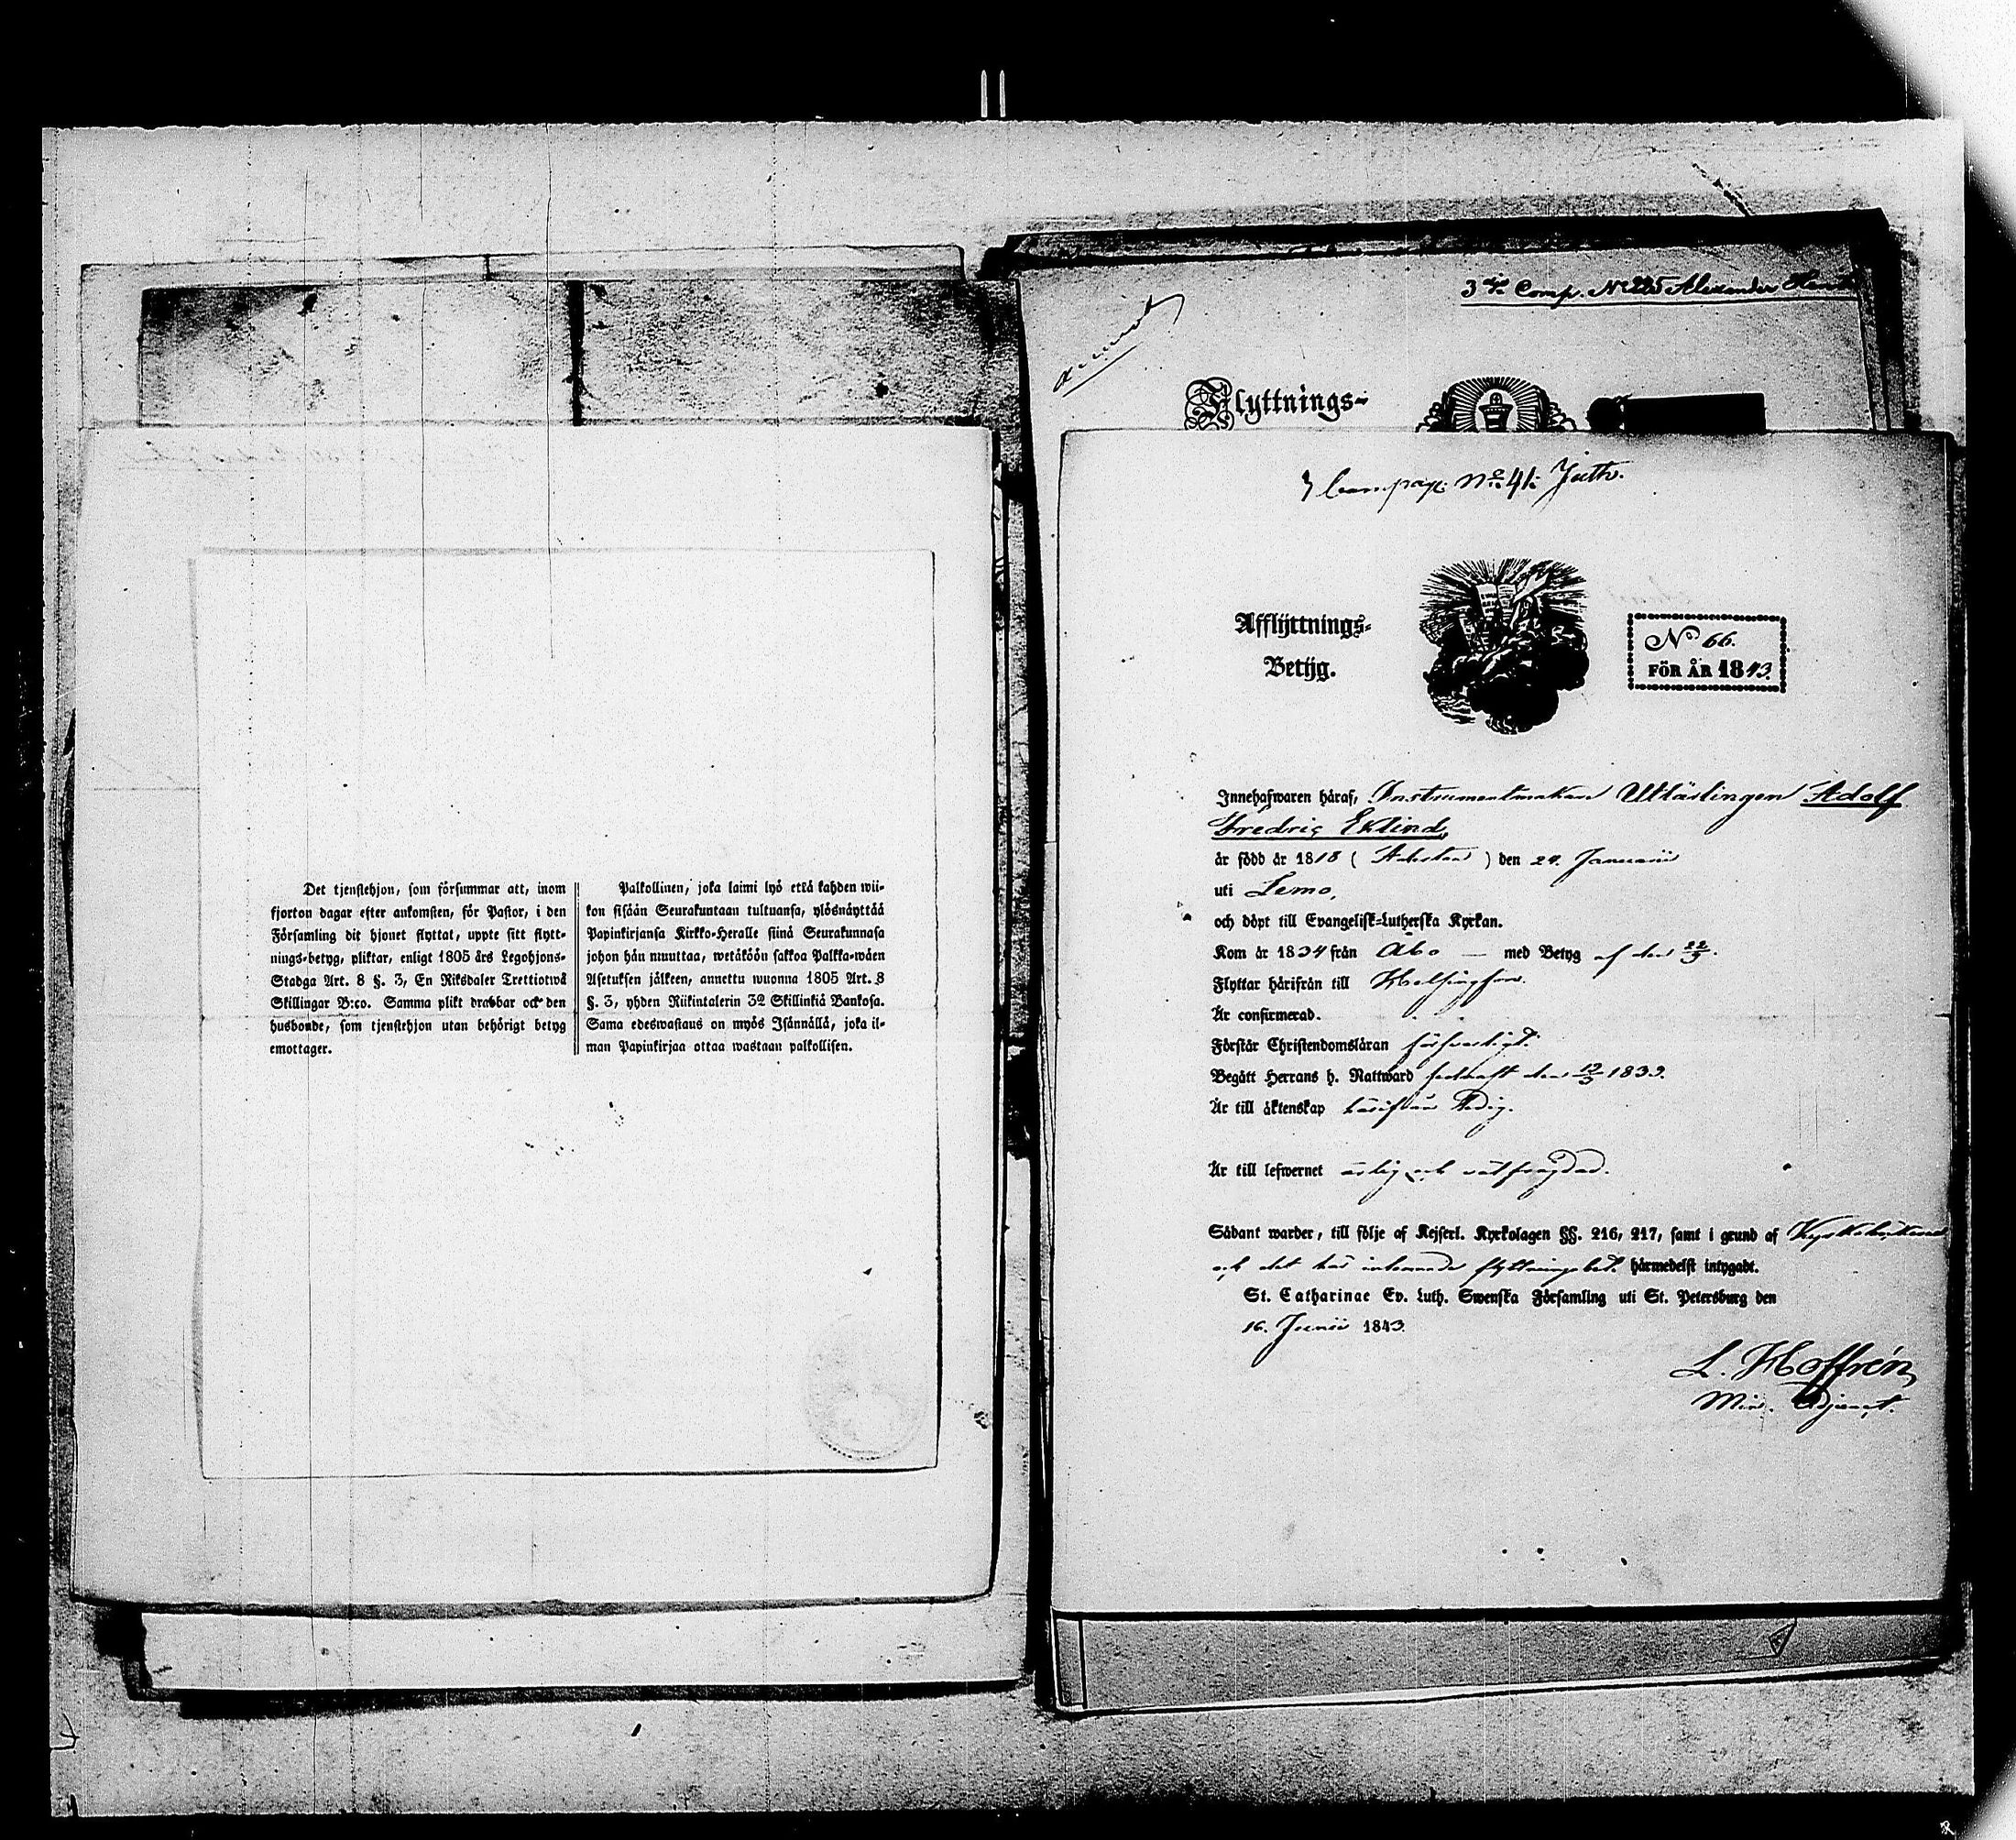 Det tjenstehjon, som försummar att, inom
fjorton dagar efter ankomsten, för Pastor, i den
Församling dit hjonet flyttat, uppte sitt flytt-
nings-betyg, pliktar, enligt 1805 års Legohjons-
Stadga Art. 8 §. 3, En Riksdaler Trettiotwå
Skillingar B:co. Samma plikt drabbar ock den
husbonde, som tjenstehjon utan behörigt betyg
emottager.
Palkollinen, joka laimi lyö että kahden wii-
kon sisään Seurakuntaan tultuansa, ylösnäyttää
Papinkirjansa Kirkko-Heralle siinä Seurakunnasa
johon hän muuttaa, wetäköön sakkoa Palkka-wäen
Asetuksen jälkeen, annettu wuonna 1805 Art. 8
§. 3, yhden Riikintalerin 32 Skillinkiä Bankosa.
Sama edeswastaus on myös Isännällä, joka il-
man Papinkirjaa ottaa wastaan palkollisen.
3dje Comp. No 225 Alexander
Flyttnings-
3 Compag: No 41: Juth.
Afflyttnings-
Betyg.
No 66.
FÖR ÅR 1843.
Innehafwaren häraf, Instrumentmakare Utlärlingen Adolf
Fredric Eklind,
är född år 1818 ( ) den 24. Januarii
uti Lemo,
och döpt till Evangelisk-Lutherska Kyrkan.
Kom år 1834 från Åbo — med Betyg af den 22/5.
Flyttar härifrån till Helsingfors.
Är confirmerad.
Förstår Christendomsläran försvarligt.
Begått Herrans h. Nattward sednast den 19/3 1839.
Är till äktenskap härifrån ledig.
Är till lefwernet ärlig och välfrägdad.
Sådant warder, till följe af Kejserl. Kyrkolagen §§. 216, 217, samt i grund af Kyrkoböckerne
och det här inlemnade flyttningsbet. härmedelst intygadt.
St. Catharinae Ev. Luth. Swenska Församling uti St. Petersburg den
16. Junii 1843.
L. Hoffrén,
Min. Adjunct.